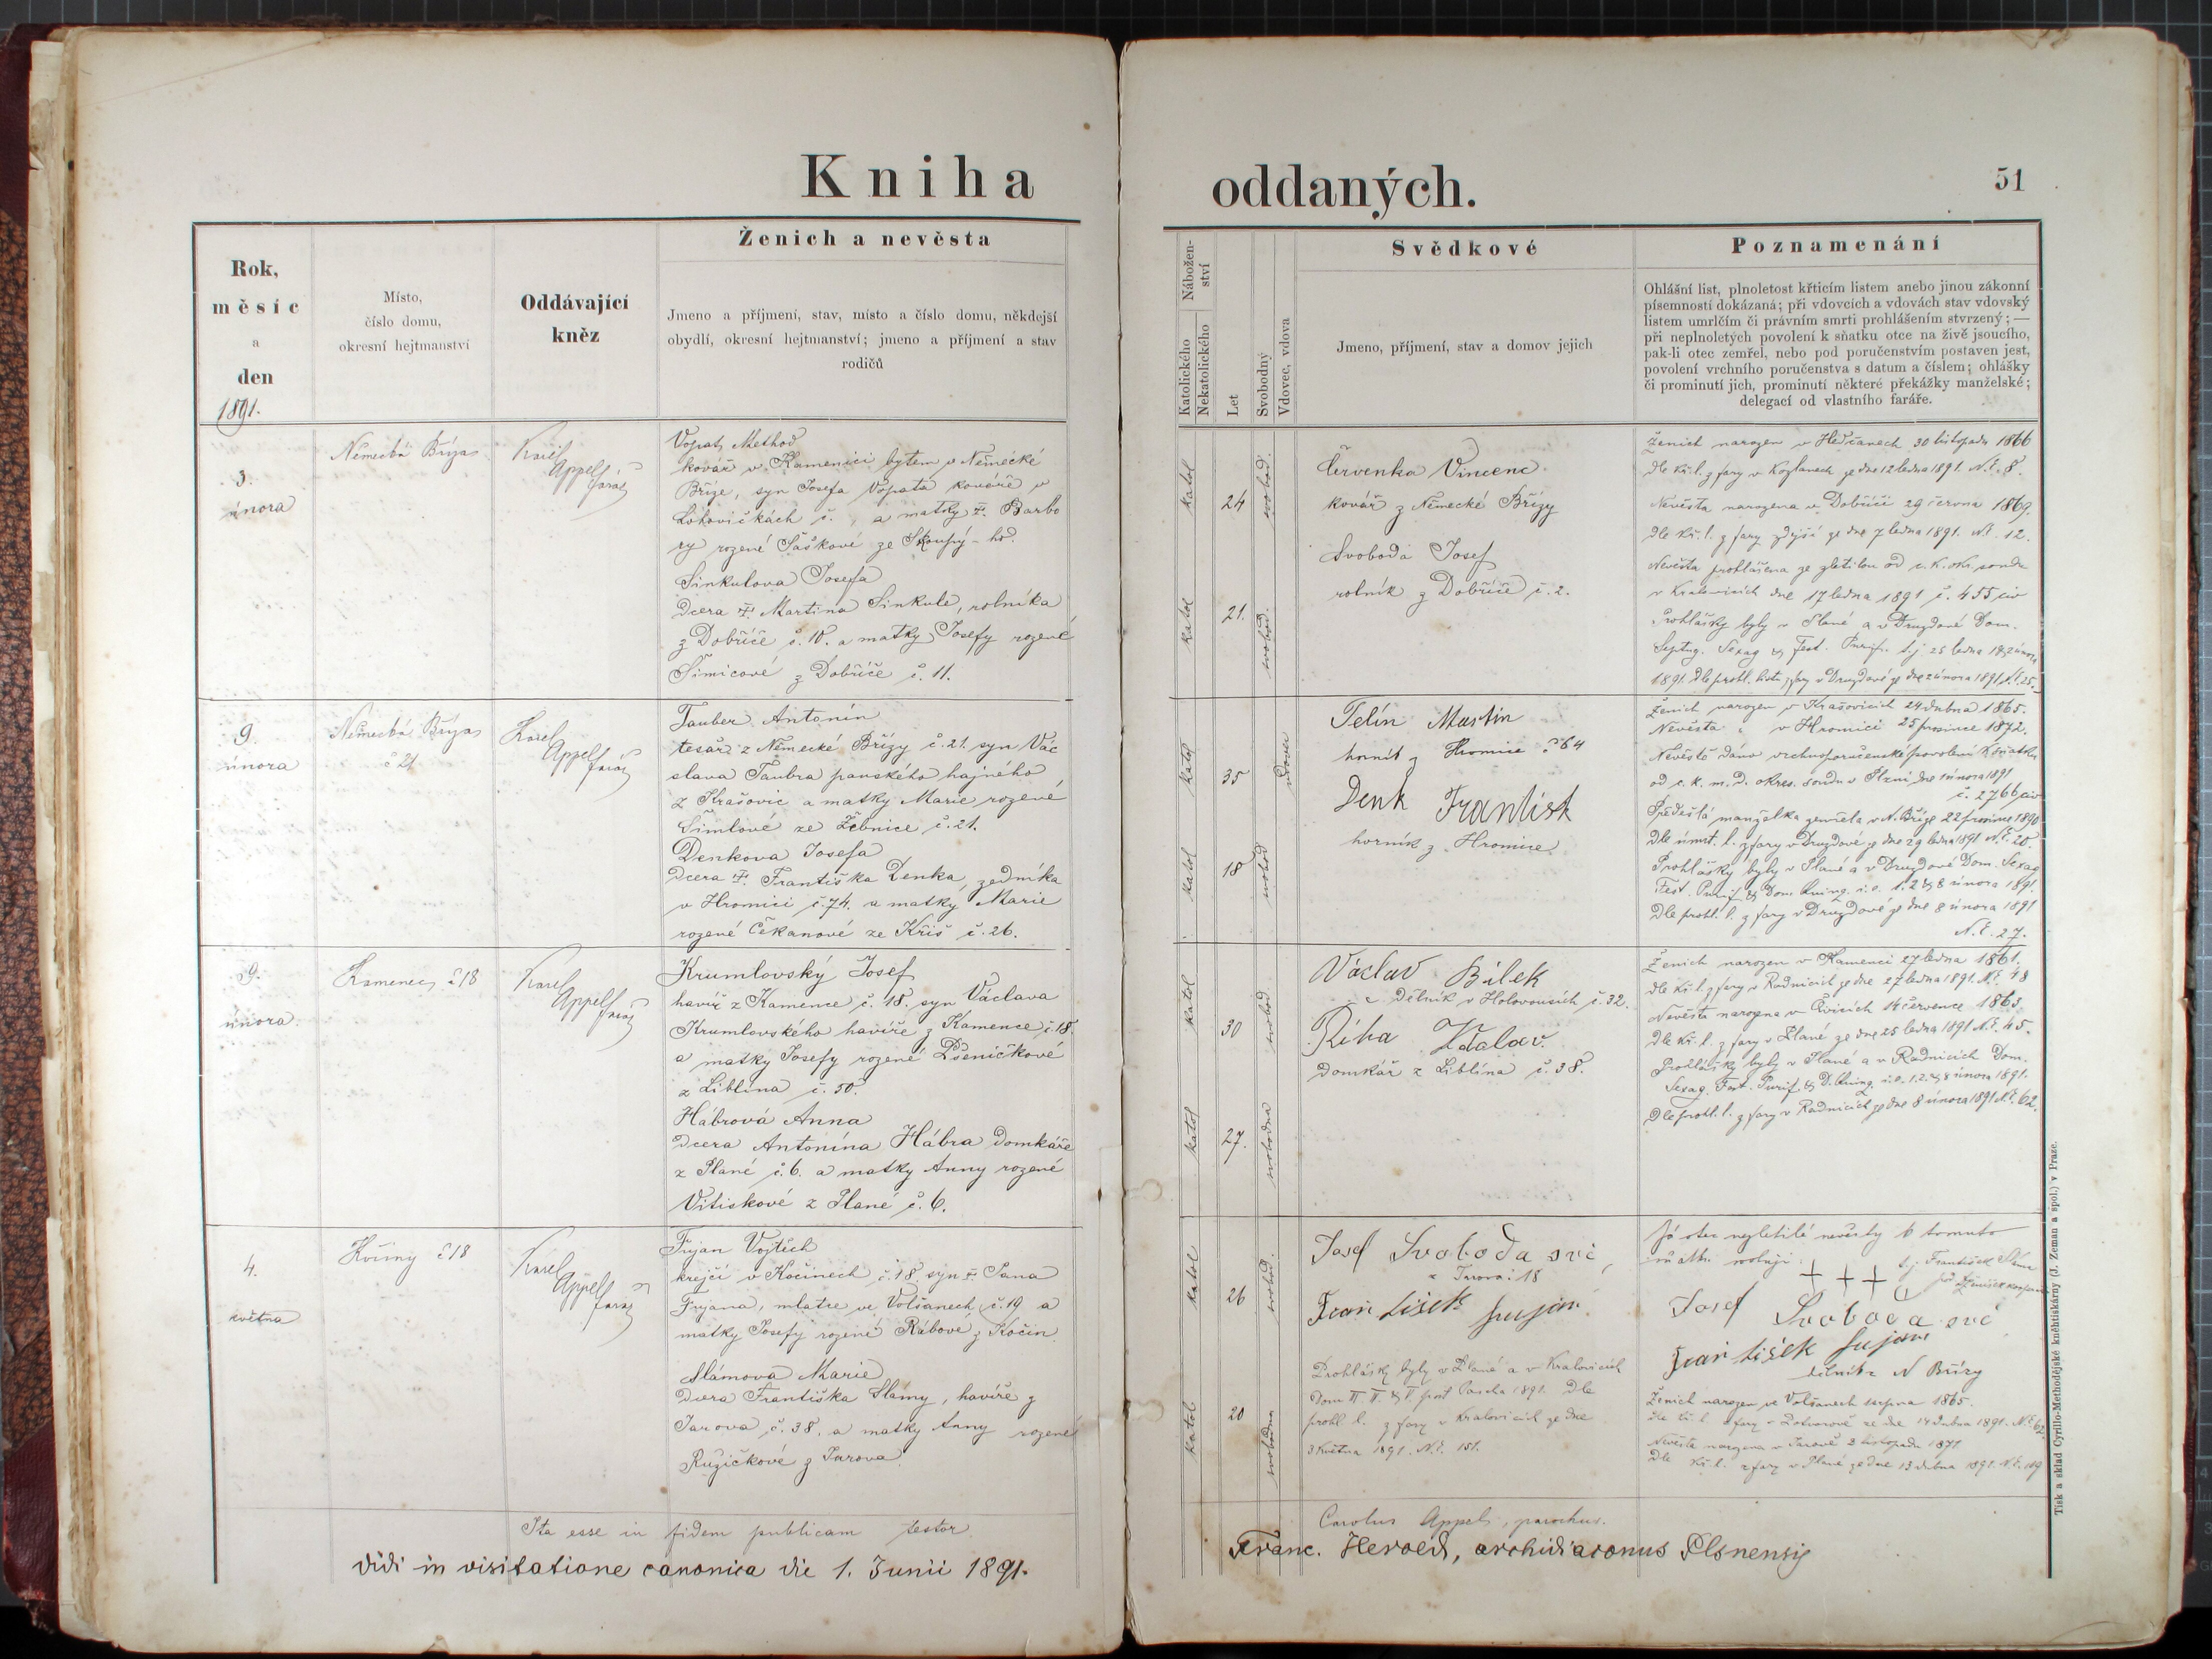 Kniha oddaných.
51
Rok,
měsíc
a
den
1891.
Místo,
číslo domu,
okresní hejtmanství
Oddávající
kněz
Ženich a nevěsta
Jmeno a příjmení, stav, místo a číslo domu, někdejší
obydlí, okresní hejtmanství; jmeno a příjmení a stav
rodičů
Nábožen-
ství
Katolického
Nekatolického
Let
Svobodný
Vdovec, vdova
Svědkové
Jmeno, příjmení, stav a domov jejich
Poznamenání
Ohlášní list, plnoletost křticím listem anebo jinou zákonní
písemností dokázaná; při vdovcích a vdovách stav vdovský
listem umrlčím či právním smrti prohlášením stvrzený; —
při neplnoletých povolení k sňatku otce na živě jsoucího,
pak-li otec zemřel, nebo pod poručenstvím postaven jest,
povolení vrchního poručenstva s datum a číslem; ohlášky
či prominutí jich, prominutí některé překážky manželské;
delegací od vlastního faráře.
3.
února
Německá Bříza
Karel
Appel
farář
Vopat Method
kovář v Kamenici bytem v Německé
Bříze, syn Josefa Vopata kováře v
Lohovičkách č. , a matky †. Barbo
ry rozené Šaškové ze
Sinkulova Josefa
dcera †. Martina Sinkule, rolníka
z Dobříče č. 10. a matky Josefy rozené
Šimicové z Dobříče č. 11.
katol
24
svobod.
katol
21.
svobod.
Červenka Vincenc
kovář z Německé Břízy
Svoboda Josef
rolník z Dobříče č. 2.
Ženich narozen v Hedčanech 30 listopadu 1866
dle kř. l. z fary v Kozlanech ze dne 12 ledna 1891. N.č. 8.
Nevěsta narozena v Dobříči 29 června 1869.
dle kř. l. z fary zdejší ze dne 7 ledna 1891. N.č. 12.
Nevěsta prohlášena ze zletilou od c. k. okr. soudu
v Kralovicích dne 17 ledna 1891 č. 455 civ
Prohlášky byly v Plané a v Druzdové Dom.
Septug. Sexag & Fest. Purif. t.j 25 ledna 1 & 2 února
1891. dle prohl. listu z fary v Druzdové ze dne 2 února 1891 N.č. 25.
9.
února
Německá Bříza
č 21
Karel
Appel
farář
Tauber Antonín
tesař z Německé Břízy č. 21. syn Vác
slava Taubra panského hajného
z Krašovic a matky Marie rozené
Šimlové ze Žebnice č. 21.
Denkova Josefa
dcera †. Františka Denka, zedníka
v Hromici č. 74. a matky Marie
rozené Čekanové ze Kříš č. 26.
katol
35
vdovec
katol
18
svobod
Telín Martin
horník z Hromice č 64
Denk František
horník z Hromice
Ženich narozen v Krašovicích 24 dubna 1865.
Nevěsta " v Hromici 25 prosince 1872.
Nevěstě dáno vrchnoporučenské povolení k sňatku
od c. k. m. d. okres. soudu v Plzni dne 1 února 1891
č. 2766 civ
Předešlá manželka zemřela v N. Bříze 22 prosince 1890
dle úmrt. l. z fary v Druzdové ze dne 29 ledna 1891 N.č. 20.
Prohlášky byly v Plané a v Druzdové Dom. Sexag
Fest. Purif & Dom. Quing. t.j. 1. 2 & 8 února 1891.
dle prohl. l. z fary v Druzdové ze dne 8 února 1891
N.č. 27.
9.
února.
Kamenec č 18
Karel
Appel
farář
Krumlovský Josef
havíř z Kamence č. 18. syn Václava
Krumlovského havíře z Kamence č. 18.
a matky Josefy rozené Pšeničkové
z Liblína č. 50.
Hábrová Anna
dcera Antonína Hábra domkáře
z Plané č. 6. a matky Anny rozené
Vitiskové z Plané č. 6.
katol
30
svobod
katol
27.
svobodna
Václav Bílek
Dělník v Holovousích č. 32.
Říha Václav.
Domkář z Liblína č. 38.
Ženich narozen v Kamenci 27 ledna 1861.
dle kř. l. z fary v Radnicích ze dne 27 ledna 1891. N.č. 48
Nevěsta narozena v Čivicích 14 července 1863.
dle kř. l. z fary v Plané ze dne 25 ledna 1891 N.č. 45.
Prohlášky byly v Plané a v Radnicích Dom.
Sexag. Fest. Purif & D. Quing. t.j. 1. 2. & 8 února 1891.
dle prohl. l. z fary v Radnicích ze dne 8 února 1891 N.č. 62.
4.
května
Kočiny č 18
Karel
Appel
farář
Fujan Vojtěch
krejčí v Kočinech č. 18. syn †. Jana
Fujana, mlatce ve Volšanech č. 19 a
matky Josefy rozené Rábové z Kočin
Slámova Marie
dcera Františka Slámy, havíře z
Jarova č. 38. a matky Anny rozené
Růžičkové z Jarova
katol
26
svobod.
katol
20
svobodna
Josef Svoboda svč,
z Jarova: 18
František Fujan
Prohlášky byly v Plané a v Kralovicích
Dom II. & V post Pascha 1891. Dle
prohl. l. z fary v Kralovicích ze dne
3 května 1891. N.č. 151.
Já otec nezletilé nevěsty k tomuto
sňatku svoluji.
+ + +
t.j. František Sláma
Josef Svoboda svč
František Fujan
dělník z N Břízy
Ženich narozen ve Volšanech srpna 1865.
dle kř. l. z fary v Potvorově ze dne 14 dubna 1891. N.č. 62.
Nevěsta narozena v Jarově 3 listopadu 1871
dle kř. l. z fary v Plané ze dne 13 dubna 1891. N.č. 119
Ita esse in fidem publicam testor. Carolus Appel, parochus.
Vidi in visitatione canonica die 1. Junii 1891. Franc. Herold, archidiaconus Plsnensis
Tisk a sklad Cyrillo-Methodějské kněhtiskárny (J. Zeman a spol.) v Praze.